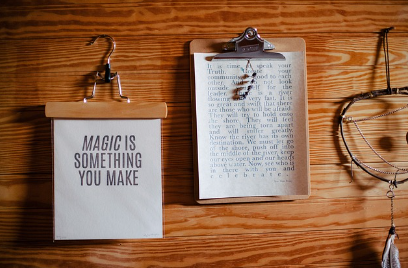 MAGIC IS
SOMETHING
YOU MAKE
It is time to speak your
Truth. your
community
for the
flowing very fast. It is
so great and swift that there
are those who will be afraid.
They will try to hold
the shore. They will feel
they are being torn apart
and will suffer greatly.
Know the river has its own
destination.
of the shore, push off into
the middle of the river, keep
our eyes open and our heads
above water. Now see who is
in there with you and
celebrate.